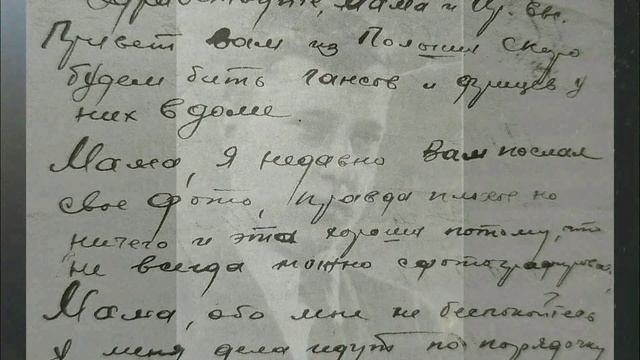 Здравствуйте, мама и
Привет Вам из Польши скоро
будем бить гансов и фрицев у
них в доме.
Мама, я недавно Вам послал
свое фото, правда плохое но
ничего и эта хороша потому, что
не всегда можно сфотографирова
Мама, обо мне не беспокойтесь
у меня дела идут по порядочку